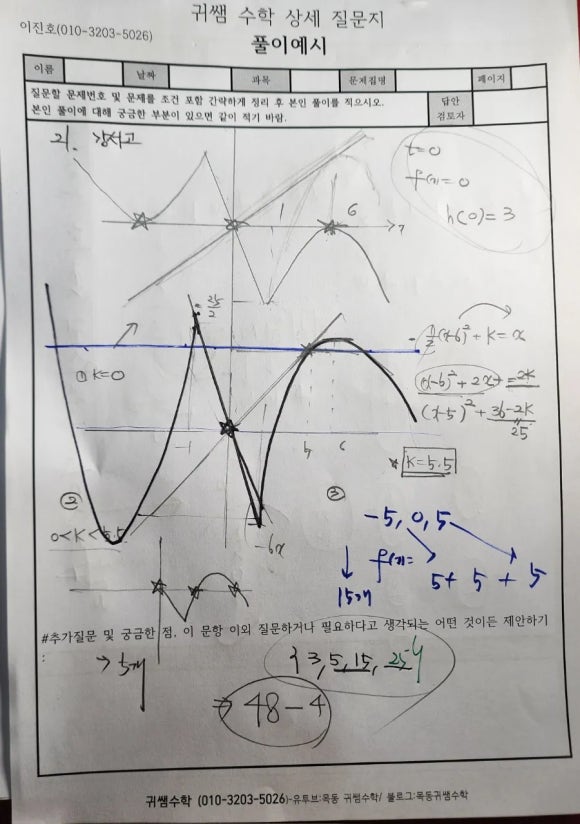 귀쌤 수학 상세 질문지
이진호(010-3203-5026)
풀이예시
이름 날짜 과목 문제집명 페이지
질문할 문제번호 및 문제를 조건 포함 간략하게 정리 후 본인 풀이를 적으시오.
본인 풀이에 대해 궁금한 부분이 있으면 같이 적기 바람.
답안
검토자
21. 강서고
t=0
f(x)=0
h(0)=3
6
x
25/2
-1/2(x-6)²+K=x
① K=0
(x-6)²+2x=2K
(x-5)²+36-2K
25
-1
5 6
* K=5.5
②
0<K<5.5
-6x
③
-5, 0, 5
f(x)=
15개
5+ 5 + 5
#추가질문 및 궁금한 점, 이 문항 이외 질문하거나 필요하다고 생각되는 어떤 것이든 제안하기
:
→ 5개
{3, 5, 15, 25}
⇒ 48-4
귀쌤수학 (010-3203-5026)-유투브:목동 귀쌤수학/ 블로그:목동귀쌤수학